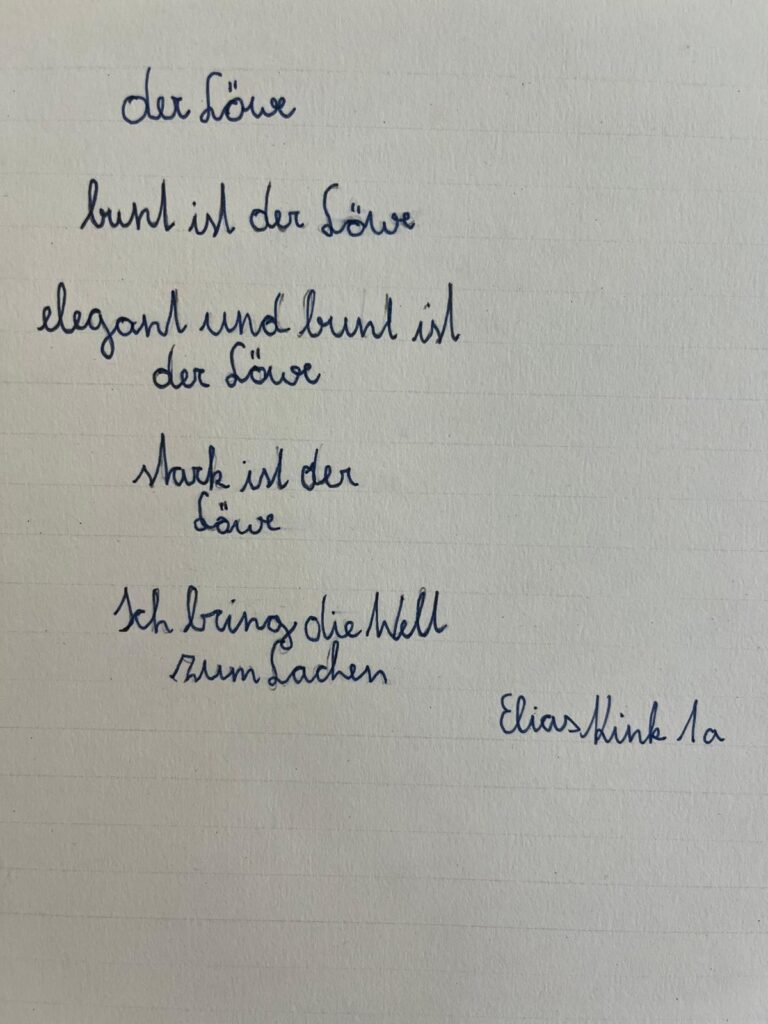 der Löwe
bunt ist der Löwe
elegant und bunt ist
der Löwe
stark ist der
Löwe
Ich bring die Welt
zum Lachen
Elias Kink 1a